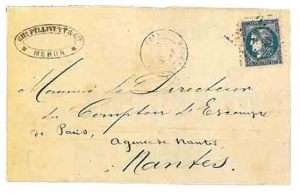 CH. PILLIVUYT & Cie
MEHUN
Monsieur Le Directeur
du Comptoir d'Escompte
de Paris, Agence de Nantes
à Nantes.